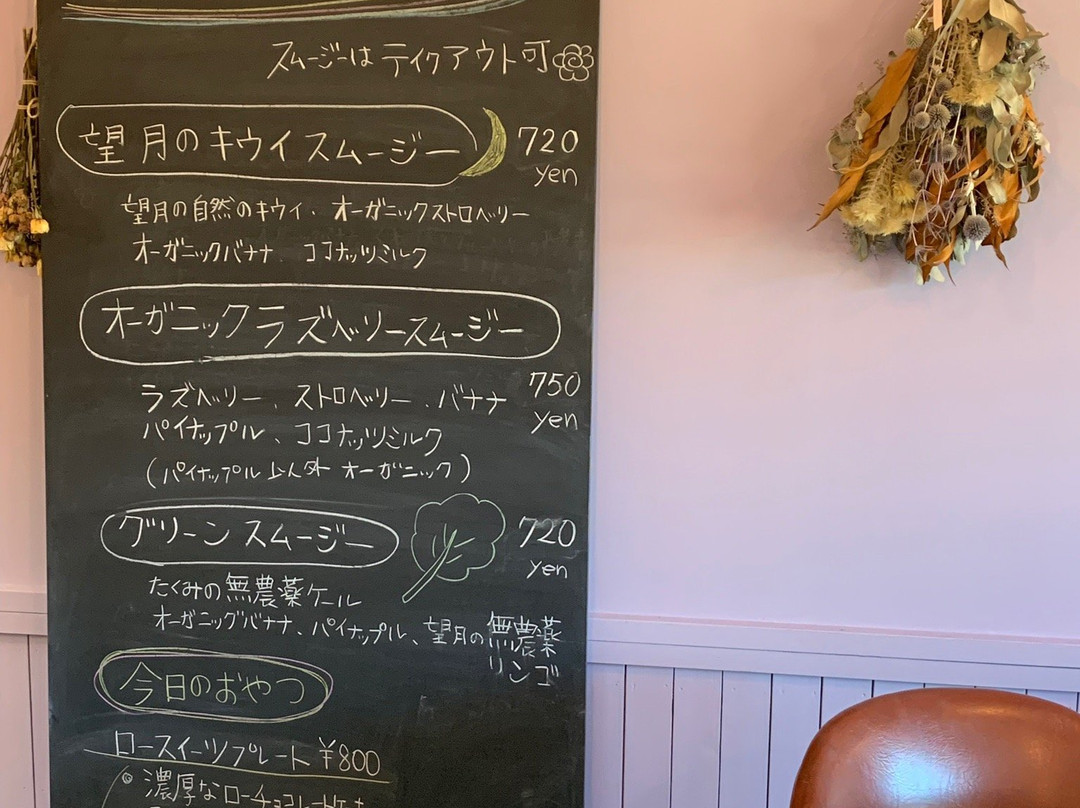 スムージーは ティクアウト可
望月のキウイスムージー 720
yen
望月の自然のキウイ、オーガニックストロベリー
オーガニックバナナ、ココナッツミルク
オーガニックラズベリースムージー
ラズベリー、ストロベリー、バナナ 750
yen
パイナップル、ココナッツミルク
(パイナップル以外 オーガニック)
グリーンスムージー 720
yen
たくみの無農薬ケール
オーガニックバナナ、パイナップル、望月の無農薬
リンゴ
今日のおやつ
ロースイーツプレート ¥800
濃厚なローチョコレート